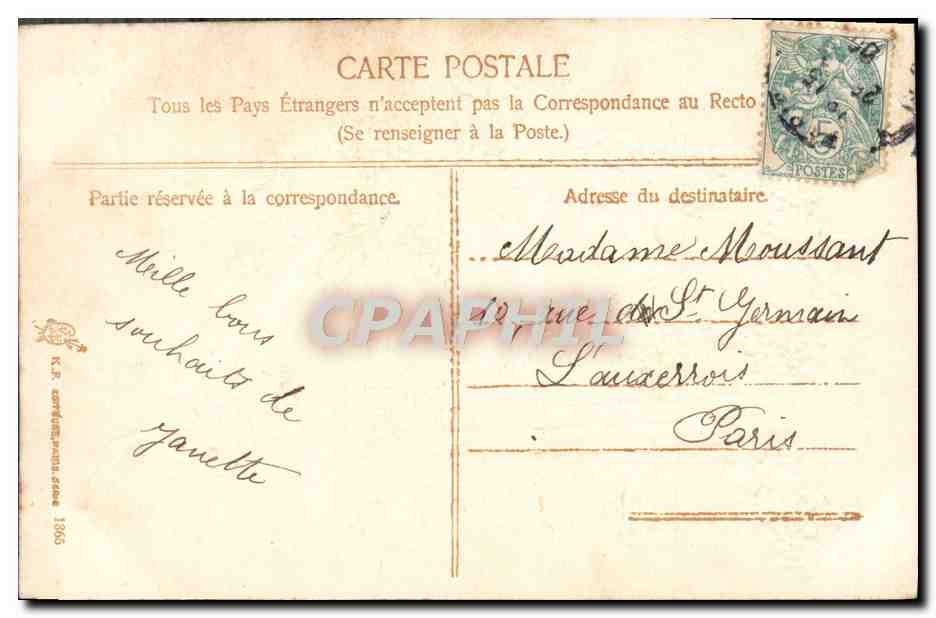 CARTE POSTALE
Tous les Pays Étrangers n'acceptent pas la Correspondance au Recto
(Se renseigner à la Poste.)
Partie réservée à la correspondance.
Mille bons
souhaits de
Janette
Adresse du destinataire.
Madame Moussant
10, rue de St Germain
L'auxerrois
Paris
5
POSTES
CPAPHIL
K.F.
1866